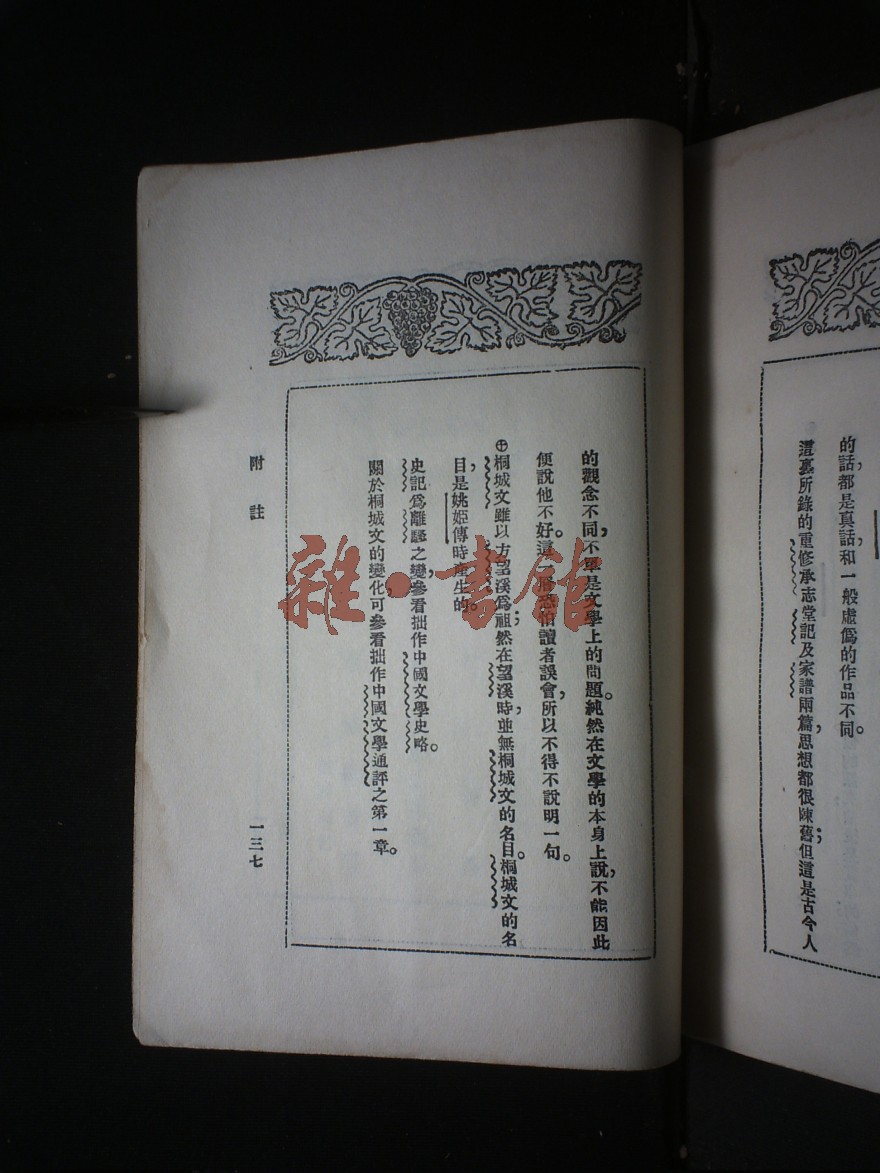 的話，都是真話，和一般虛僞的作品不同。
這裏所錄的重修承志堂記及家譜兩篇，思想都很陳舊；但這是古今人
的觀念不同，不單是文學上的問題。純然在文學的本身上說，不能因此
便說他不好。這一層恐怕讀者誤會，所以不得不說明一句。
㊉桐城文雖以方望溪爲祖；然在望溪時，並無桐城文的名目。桐城文的名
目，是姚姬傳時產生的。
史記爲離騷之變，參看拙作中國文學史略。
關於桐城文的變化可參看拙作中國文學通評之第一章。
附註
一三七
雜·書館